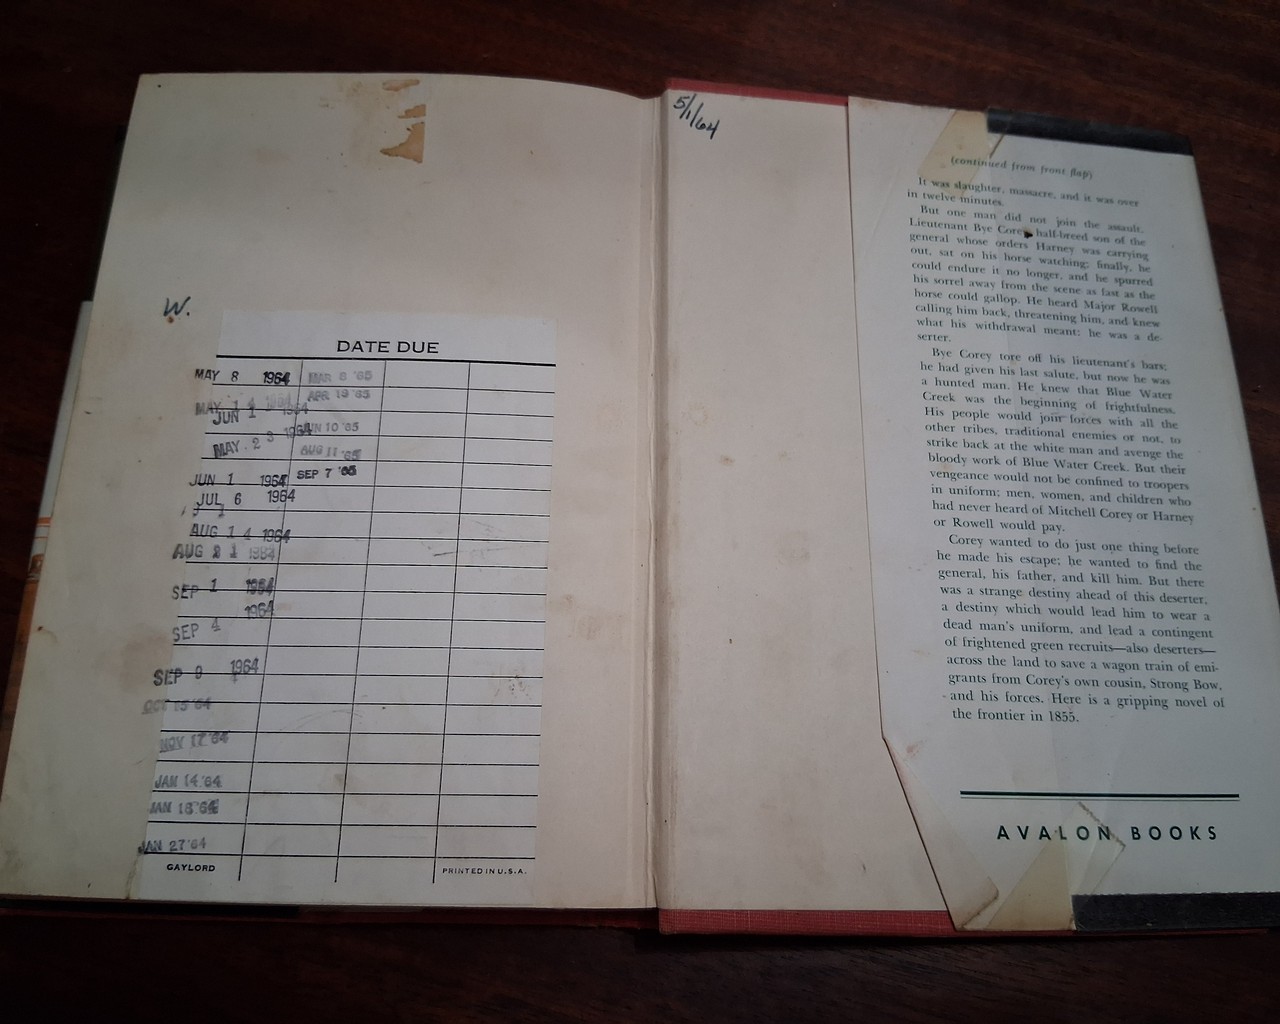 W.
DATE DUE
MAY 8 1964
MAY 1 4 1964
JUN 1 1964
MAY 2 3 1964
JUN 1 1964
JUL 6 1964
AUG 1 4 1964
AUG 2 1 1964
SEP 1 1964
SEP 4 1964
SEP 9 1964
OCT 15 '64
NOV 17 '64
JAN 14 '64
JAN 18 '64
JAN 27 '64
MAR 8 '65
APR 19 '65
JUN 10 '65
AUG 11 '65
SEP 7 '65
GAYLORD
PRINTED IN U.S.A.
5/1/64
(continued from front flap)
It was slaughter, massacre, and it was over
in twelve minutes.
But one man did not join the assault.
Lieutenant Bye Corey, half-breed son of the
general whose orders Harney was carrying
out, sat on his horse watching; finally, he
could endure it no longer, and he spurred
his sorrel away from the scene as fast as the
horse could gallop. He heard Major Rowell
calling him back, threatening him, and knew
what his withdrawal meant: he was a de-
serter.
Bye Corey tore off his lieutenant's bars;
he had given his last salute, but now he was
a hunted man. He knew that Blue Water
Creek was the beginning of frightfulness.
His people would join forces with all the
other tribes, traditional enemies or not, to
strike back at the white man and avenge the
bloody work of Blue Water Creek. But their
vengeance would not be confined to troopers
in uniform; men, women, and children who
had never heard of Mitchell Corey or Harney
or Rowell would pay.
Corey wanted to do just one thing before
he made his escape; he wanted to find the
general, his father, and kill him. But there
was a strange destiny ahead of this deserter,
a destiny which would lead him to wear a
dead man's uniform, and lead a contingent
of frightened green recruits—also deserters—
across the land to save a wagon train of emi-
grants from Corey's own cousin, Strong Bow,
and his forces. Here is a gripping novel of
the frontier in 1855.
AVALON BOOKS